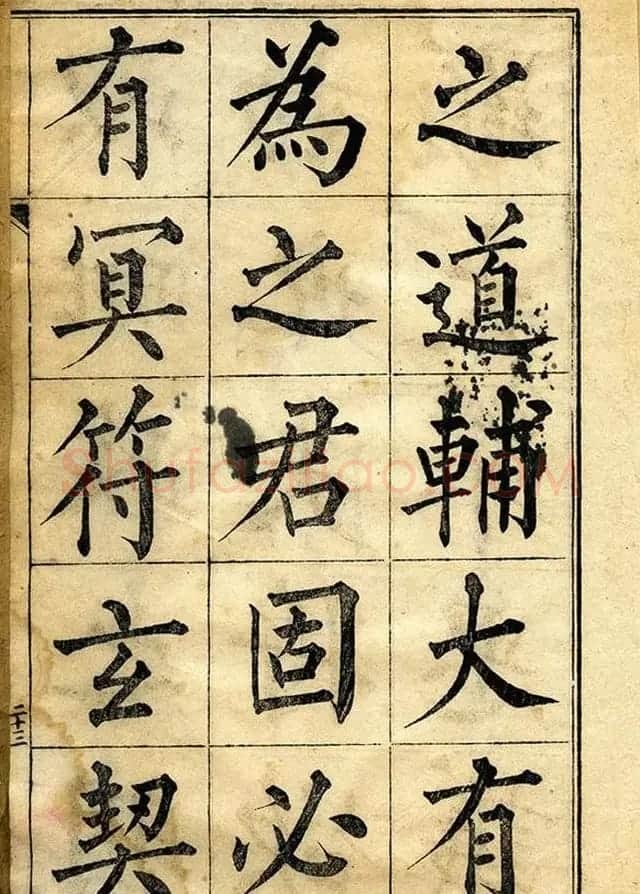 之道輔大有
為之君固必
有冥符玄契
二十三
shufaziliao.com